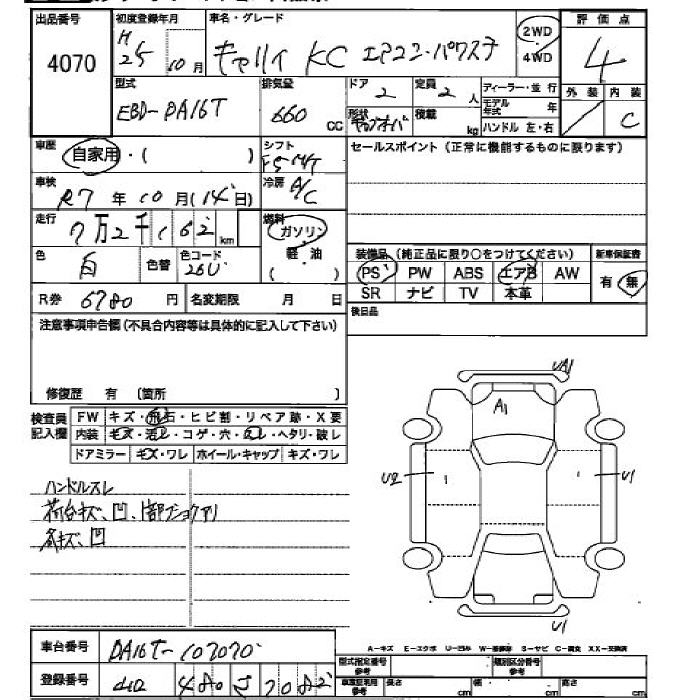 出品番号 初度登録年月 車名・グレード 評価点
4070 H25 10月 キャリイ KC エアコン・パワステ 2WD ・ 4WD 4
型式 排気量 ドア 定員 ディーラー・並 行 外装 内装
EBD-DA16T 660 CC 2 2 人 モデル年式 年 C
形状 積載 kg ハンドル 左・右
車歴 自家用・( ) シフト F5 M/T セールスポイント(正常に機能するものに限ります)
車検 R7 年 10 月(14日) 冷房 A/C
走行 7万2千162 km 燃料 ガソリン 軽油 ( )
色 白 色替 色コード 26U
装備品(純正品に限り○をつけてください) 新車保証書
PS PW ABS エアB AW 有・無
SR ナビ TV 本革
R券 6780 円 名変期限 月 日
後日品
注意事項申告欄(不具合内容等は具体的に記入して下さい)
修復歴 有 〔箇所 〕
検査員記入欄
FW キズ・飛石・ヒビ割・リペア跡・X要
内装 キズ・汚レ・コゲ・穴・スレ・ヘタリ・破レ
ドアミラー キズ・ワレ ホイール・キャップ キズ・ワレ
ハンドルスレ
荷台キズ、凹、1部フショクアリ
各キズ、凹
UA1
A1
U2 U1
U1
A-キズ E-エクボ U-凹み W-補修跡 S-サビ C-腐食 XX-交換済
車台番号 DA16T-107070
登録番号 480
型式指定番号 参考 類別区分番号 参考
車庫証明用 参考 長さ cm 幅 cm 高さ cm